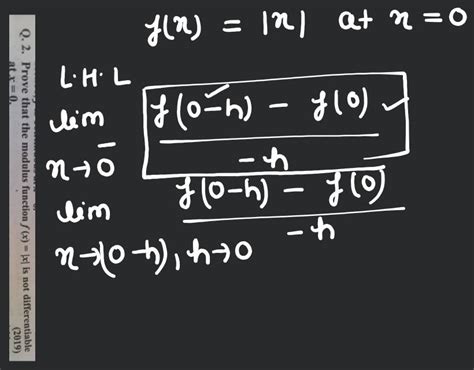 Q. 2. Prove that the modulus function f(x) = |x| is not differentiable
at x = 0.
(2019)
f(x) = |x| at x = 0
L.H.L
lim f(0-h) - f(0)
x→0⁻ -h
lim f(0-h) - f(0)
x→(0-h), h→0 -h